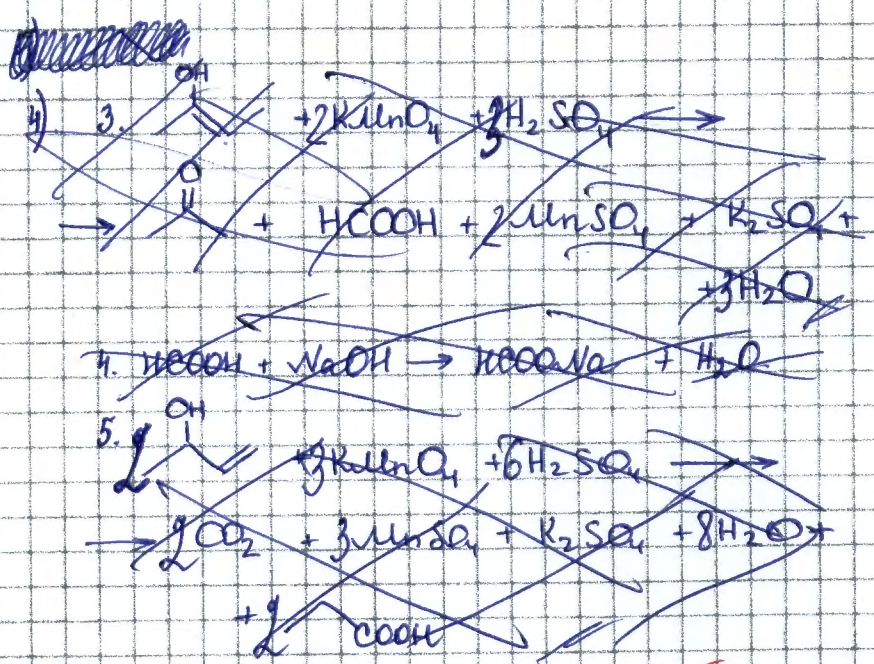 OH
4) 3. +2KMnO4 +3H2SO4 →
O
→ + HCOOH + 2MnSO4 + K2SO4 +
+3H2O
4. HCOOH + NaOH → HCOONa + H2O
OH
5. 2 +3KMnO4 +6H2SO4 →
→ 2CO2 + 3MnSO4 + K2SO4 +8H2O+
+2 COOH